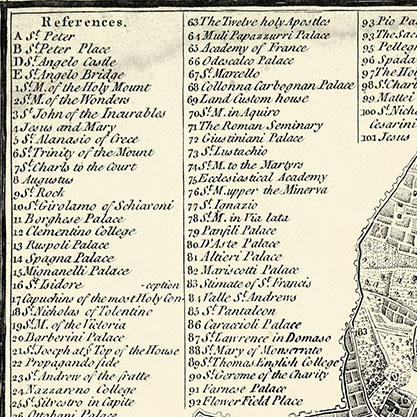 References.
A St. Peter
B St. Peter Place
D St. Angelo Castle
E St. Angelo Bridge
1 St. M. of the Holy Mount
2 St. M. of the Wonders
3 St. John of the Incurables
4 Jesus and Mary
5 St. Alanasio of Crece
6 St. Trinity of the Mount
7 St. Charls to the Court
8 Augustus
9 St. Rock
10 St. Girolamo of Schiavoni
11 Borghese Palace
12 Clementino College
13 Ruspoli Palace
14 Spagna Palace
15 Mignanelli Palace
16 St. Isidore -ception
17 Capuchins of the most Holy Con-
18 St. Nicholas of Tolentino
19 St. M. of the Victoria
20 Barberini Palace
21 St. Joseph at ye Top of the House
22 Propaganda fide
23 St. Andrew of the fratte
24 Nazzareno College
25 St. Silvestro in Capite
26 Ottobani Palace
63 The Twelve holy Apostles
64 Muti Papazzurri Palace
65 Academy of France
66 Odescalco Palace
67 St. Marcello
68 Collonna Carbognan Palace
69 Land Custom house
70 St. M. in Aquiro
71 The Roman Seminary
72 Giustiniani Palace
73 St. Eustachio
74 St. M. to the Martyrs
75 Ecclesiastical Academy
76 St. M. upper the Minerva
77 St. Ignazio
78 St. M. in Via lata
79 Panfili Palace
80 D'Aste Palace
81 Altieri Palace
82 Mariscotti Palace
83 Stimate of St. Francis
84 Valle St. Andrews
85 St. Pantaleon
86 Caraccioli Palace
87 St. Lawrence in Domaso
88 St. Mary of Monserrato
89 St. Thomas English College
90 St. Gerome of the Charity
91 Farnese Palace
92 Flower Field Place
93 Pio Pa
94 The Sac
95 Pellegr
96 Spada
97 The Ho
98 St. Charl
99 Mattei
100 St. Nich
Cesarini
101 Jesus
183